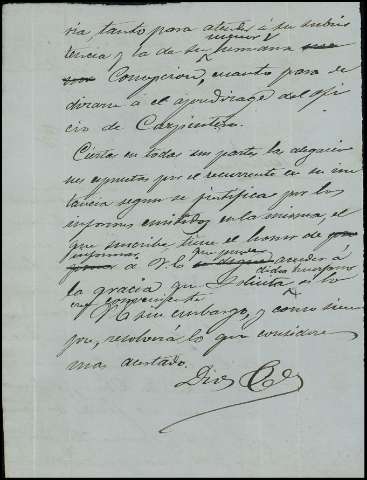 ria, tanto para atender á su subsis
menor
tencia y la de su hermana
Concepcion, cuanto para de
dicarse á el aprendizage del ofi
cio de Carpintero.
Ciertas en todas sus partes las alegacio
nes espuestas por el recurrente en su ins
tancia segun se justifica por los
informes emitidos en la misma, el
que suscribe tiene el honor de
informar á V.E. que puede acceder á
la gracia que solicita si lo
cree conveniente
V.E. sin embargo, y como siem
pre, resolverá lo que considere
mas acertado.
Dios &